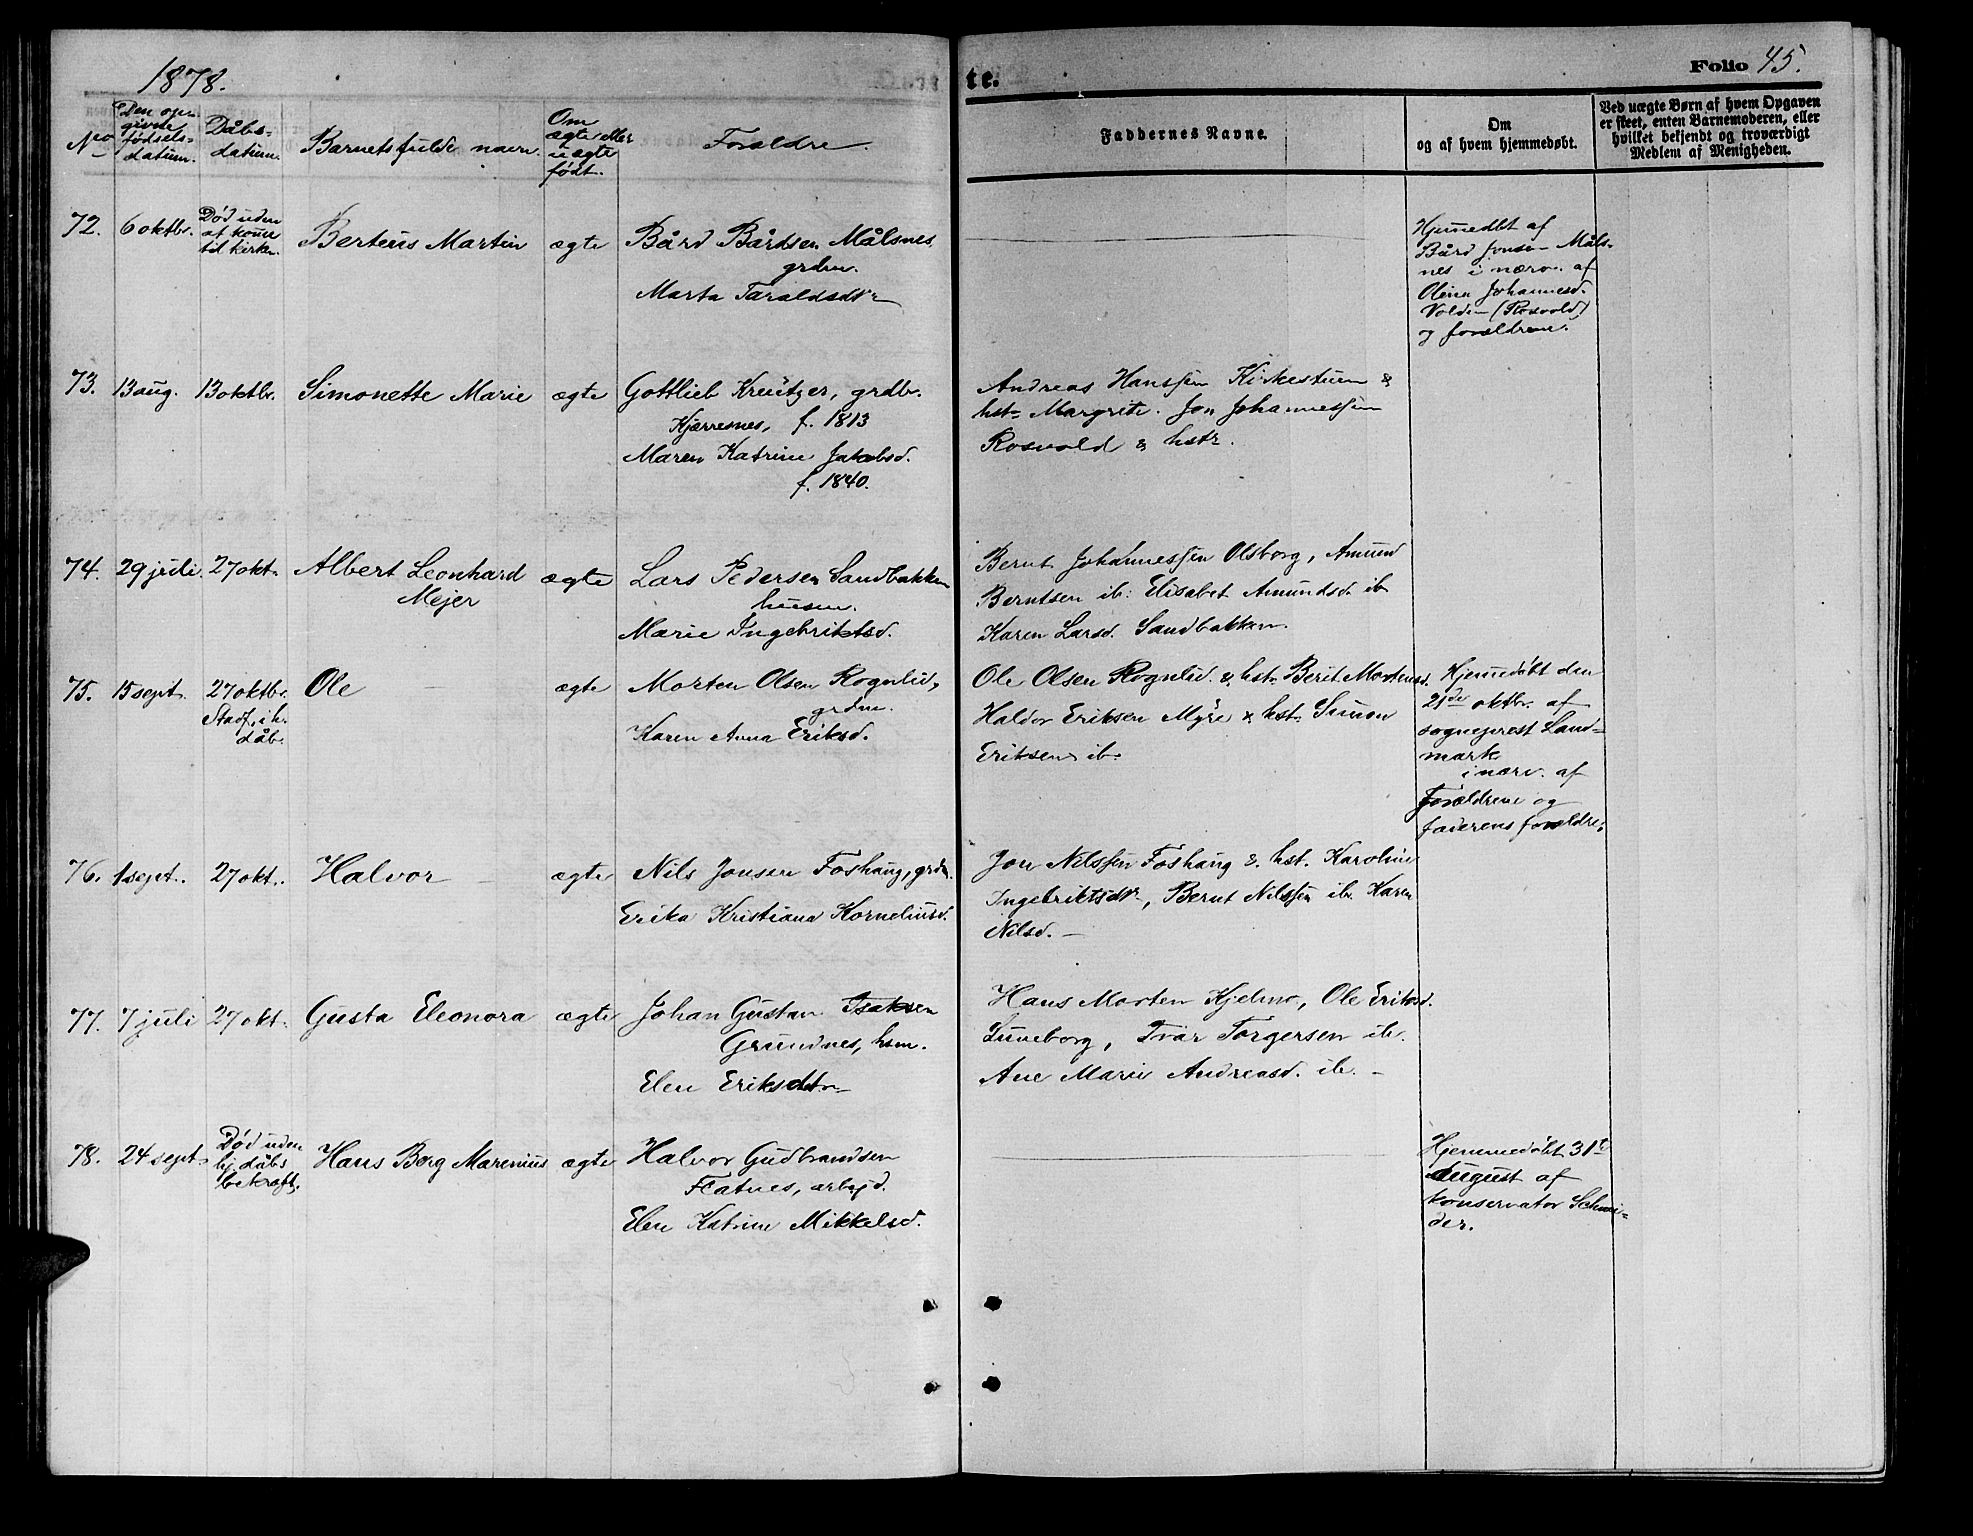 1878.
te.
Folio 45.
No
Den op-
givne
fødsels-
datum.
Dåbs-
datum.
Barnets fulde navn.
Om
ægte eller
uægte
født.
Forældre
Faddernes Navne.
Om
og af hvem hjemmedøbt.
Ved uægte Børn af hvem Opgaven
er skeet, enten Barnemoderen, eller
hvilket bekjendt og troværdigt
Medlem af Menigheden.
72.
6 oktbr.
Død uden
at kome
til kirken.
Berteus Martin
ægte
Bård Bårdsen Målsnes
grdm.
Marta Taraldsdtr
Hjemmedbt af
Bård Jonsen Måls-
nes i nærv. af
Olina Johannesd.
Volden (Rosvold)
og forældrene.
73.
13 aug.
13 oktbr.
Simonette Marie
ægte
Gottlieb Kreutzer, grdbr.
Kjærresnes, f. 1813
Maren Katrine Jakobsd.
f. 1840.
Andreas Hanssen Kirkestuen &
hstr Margrite. Jon Johannessen
Rosvold & hstr.
74.
29 juli
27 okt.
Albert Leonhard
Mejer
ægte
Lars Pedersen Sandbakken
husm.
Marie Ingebriktsd.
Bernt Johannessen Olsborg, Amund
Berntsen ib: Elisabet Amundsd. ib
Karen Larsd. Sandbakken.
75.
15 sept.
27 oktbr.
Stadf. i h.
dåb.
Ole
ægte
Morten Olsen Rognlid,
grdm.
Karen Anna Eriksd.
Ole Olsen Rognlid & hstr Berit Mortensd.
Haldor Eriksen Myre & hstr Simon
Eriksen ib.
Hjemmedøbt den
21de oktbr. af
sogneprest Land-
mark
i nærv. af
Forældrene og
faderens forældre.
76.
1 sept.
27 okt.
Halvor
ægte
Nils Jonsen Foshaug, grdm.
Erika Kristiana Korneliusd.
Jon Nilssen Foshaug & hst. Karoline
Ingebriktsdtr, Bernt Nilssen ib. Karen
Nilsd.
77.
7 juli
27 okt.
Gusta Eleonora
ægte
Johan Gustav Isaksen
Grundnes, hsm.
Elen Eriksdtr
Hans Morten Kjelmo, Ole Eriksd.
Luneborg, Ivar Torgersen ib.
Ane Marie Andreasd. ib.
78.
24 sept.
Død uden
hj. dåbs
bekræft.
Hans Berg Marenius
ægte
Halvor Gudbrandsen
Flatnes, arbejd.
Elen Katrine Mikkelsd.
Hjemmedøbt 31te
August af
konservator Schnei-
der.